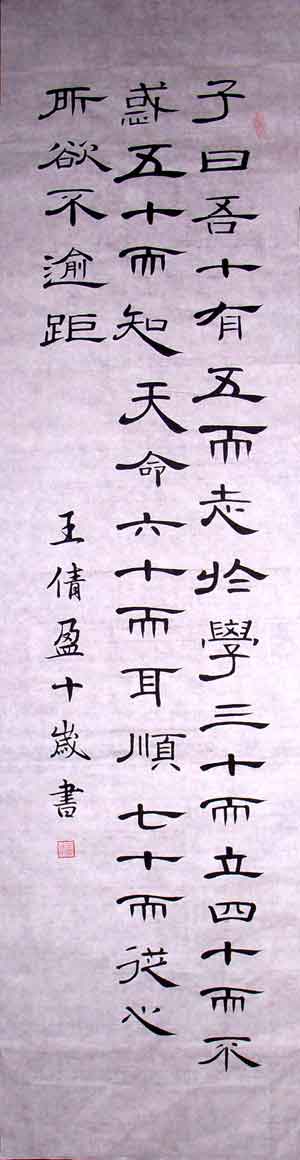 子曰吾十有五而志於學三十而立四十而不
惑五十而知天命六十而耳順七十而從心
所欲不逾距
王倩盈十歲書